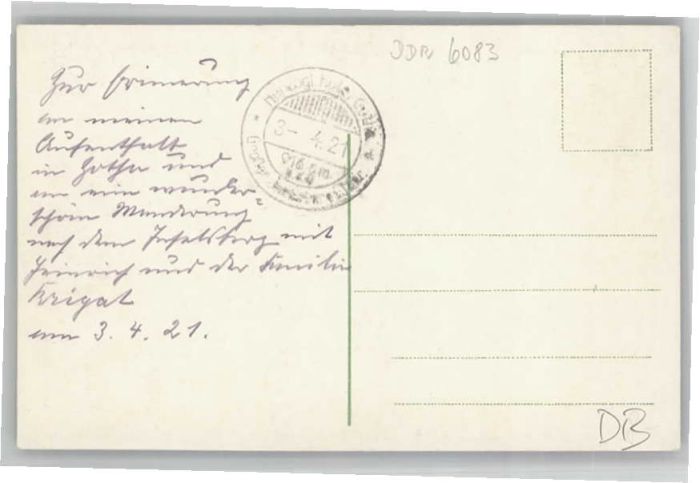 DDR 6083
Zur Erinnerung
an meinen
Aufenthalt
in Gotha und
an eine wunder-
schöne Wanderung
nach dem Inselsberg mit
Heinrich und der Familie
Krigat
am 3. 4. 21.
3- 4.21
DB